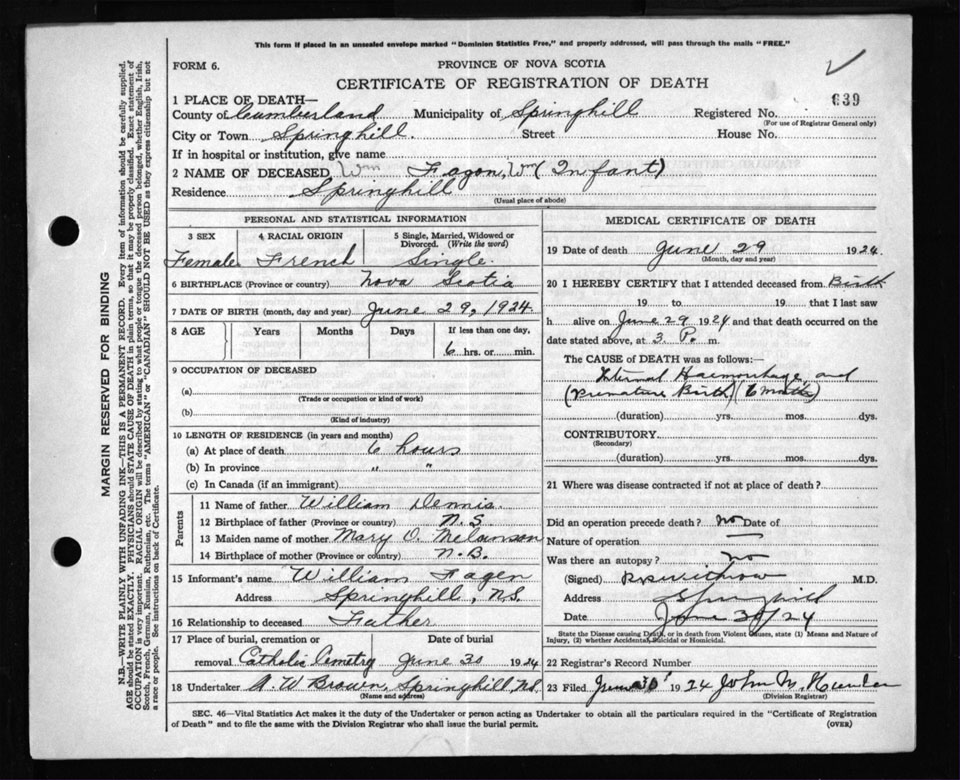 This form if placed in an unsealed envelope marked "Dominion Statistics Free," and properly addressed, will pass through the mails "FREE."
FORM 6.
PROVINCE OF NOVA SCOTIA
CERTIFICATE OF REGISTRATION OF DEATH
639
1 PLACE OF DEATH—
County of Cumberland Municipality of Springhill Registered No.
(For use of Registrar General only)
City or Town Springhill. Street House No.
If in hospital or institution, give name
2 NAME OF DECEASED Wm Fagon, Wm (Infant)
Residence Springhill
(Usual place of abode)
PERSONAL AND STATISTICAL INFORMATION
3 SEX 4 RACIAL ORIGIN 5 Single, Married, Widowed or
Divorced. (Write the word)
Female French Single.
6 BIRTHPLACE (Province or country) Nova Scotia
7 DATE OF BIRTH (month, day and year) June 29, 1924
8 AGE Years Months Days If less than one day,
6 hrs. or min.
9 OCCUPATION OF DECEASED
(a)
(Trade or occupation or kind of work)
(b)
(Kind of industry)
10 LENGTH OF RESIDENCE (in years and months)
(a) At place of death 6 hours
(b) In province " "
(c) In Canada (if an immigrant)
Parents
11 Name of father William Dennis.
12 Birthplace of father (Province or country) N.S
13 Maiden name of mother Mary O. Melanson
14 Birthplace of mother (Province or country) N.B.
15 Informant's name William Fagen
Address Springhill, N.S.
16 Relationship to deceased Father
17 Place of burial, cremation or Date of burial
removal Catholic Cemetry June 30 1924
18 Undertaker A. W Brown, Springhill N.S
(Name and address)
MEDICAL CERTIFICATE OF DEATH
19 Date of death June 29 1924
(Month, day and year)
20 I HEREBY CERTIFY that I attended deceased from Birth
19 to 19 that I last saw
h alive on June 29 1924 and that death occurred on the
date stated above, at 3 P. m.
The CAUSE OF DEATH was as follows:—
Internal Haemorrhage, and
(Premature Birth) (6 months)
(duration) yrs. mos. dys.
CONTRIBUTORY
(Secondary)
(duration) yrs. mos. dys.
21 Where was disease contracted if not at place of death?
Did an operation precede death? no Date of
Nature of operation —
Was there an autopsy? no
(Signed) M.D.
Address Springhill
Date June 30/24
State the Disease causing Death, or in death from Violent Causes, state (1) Means and Nature of
Injury, (2) whether Accidental, Suicidal or Homicidal.
22 Registrar's Record Number
23 Filed June 30 1924 John M. Hunter
(Division Registrar)
SEC. 46—Vital Statistics Act makes it the duty of the Undertaker or person acting as Undertaker to obtain all the particulars required in the "Certificate of Registration
of Death" and to file the same with the Division Registrar who shall issue the burial permit.
(OVER)
MARGIN RESERVED FOR BINDING
N.B.—WRITE PLAINLY WITH UNFADING INK—THIS IS A PERMANENT RECORD. Every item of information should be carefully supplied.
AGE should be stated EXACTLY. PHYSICIANS should STATE CAUSE OF DEATH in plain terms, so that it may be properly classified. Exact statement of
OCCUPATION is very important. RACIAL ORIGIN will be described by stating to what people or tongue the deceased person belonged, whether English, Irish,
Scotch, French, German, Russian, Ruthenian, etc. The terms "AMERICAN" "CANADIAN" SHOULD NOT BE USED as they express citizenship but not
a race or people. See instructions on back of Certificate.